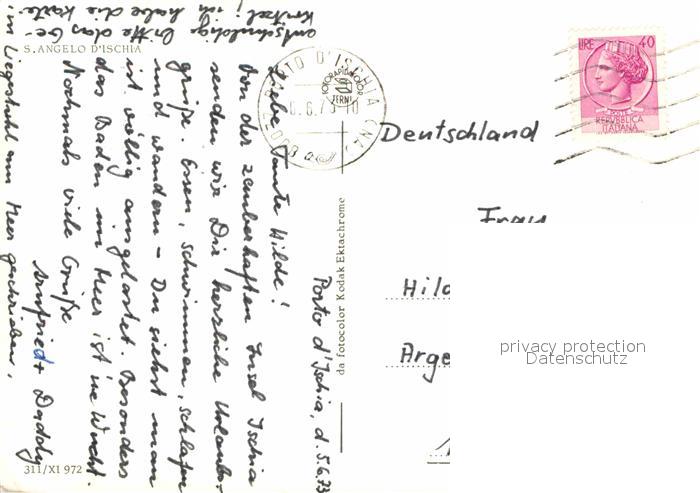 S. ANGELO D'ISCHIA
Porto d'Ischia, d. 5.6.73
Liebe Tante Hilde!
Von der zauberhaften Insel Ischia
senden wir Dir herzliche Urlaubs-
grüße. Essen, schwimmen, schlafen
und wandern – Du siehst man
ist völlig ausgelastet. Besonders
das Baden im Meer ist 'ne Wucht.
Nochmals viele Grüße
Winfried + Daddy
entschuldige bitte das Ge-
kritzel, ich habe die Karte
im Liegestuhl am Meer geschrieben.
311/XI 972
da fotocolor Kodak Ektachrome
PORTO D'ISCHIA (NA)
FOTORAPIDACOLOR
TERNI
6.6.73-10
LIRE 40
POSTE
REPVBBLICA
ITALIANA
Deutschland
Frau
Hil
Arge
privacy protection
Datenschutz